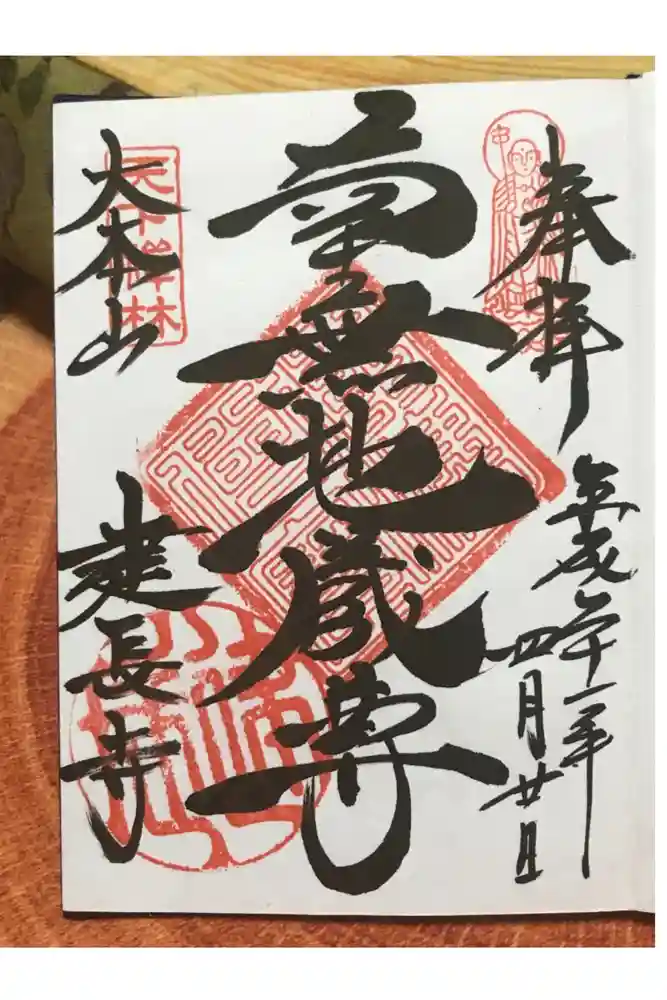 奉拝
平成卅一年
四月廿日
南無地蔵尊
天下禅林
大本山
建長寺